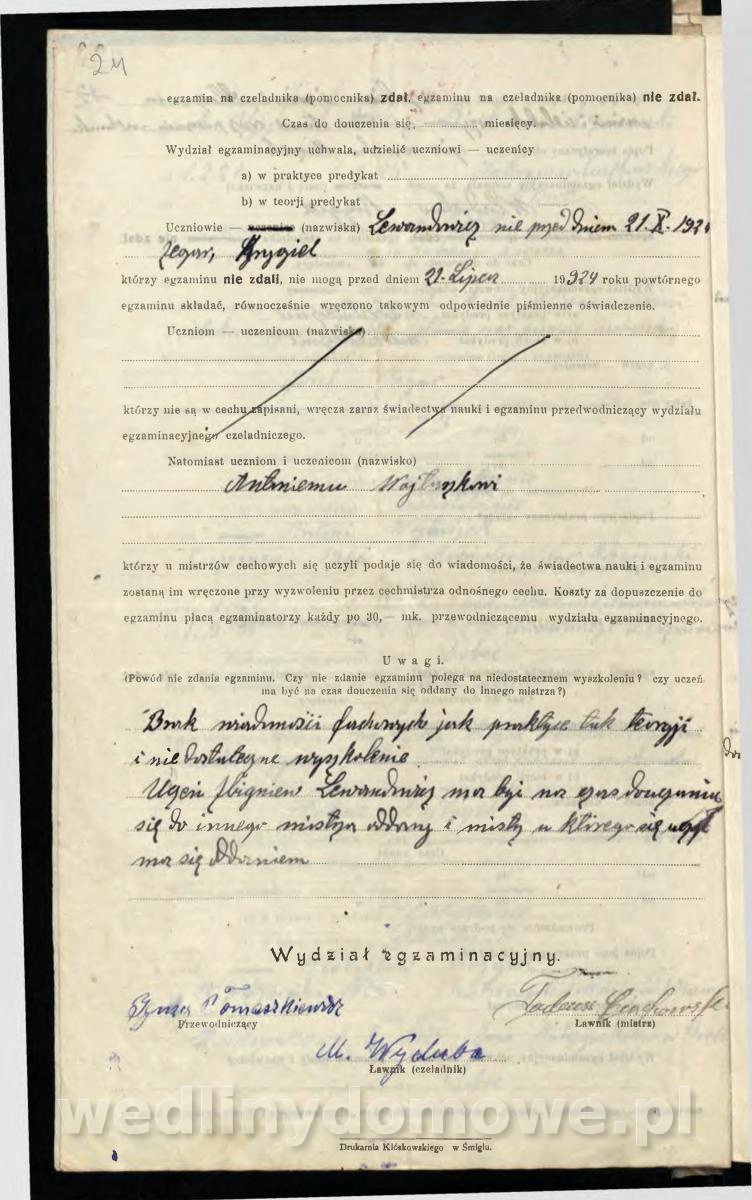 24
egzamin na czeladnika (pomocnika) zdał, egzaminu na czeladnika (pomocnika) nie zdał.
Czas do douczenia się, miesięcy.
Wydział egzaminacyjny uchwala, udzielić uczniowi — uczenicy
a) w praktyce predykat
b) w teorji predykat
Uczniowie — (nazwiska) Lewandowicz nie przed dniem 21. X. 192
Zegar,
którzy egzaminu nie zdali, nie mogą przed dniem 21. Lipca 1924 roku powtórnego
egzaminu składać, równocześnie wręczono takowym odpowiednie piśmienne oświadczenie.
Uczniom — uczenicom (nazwiska)
którzy nie są w cechu zapisani, wręcza zaraz świadectwa nauki i egzaminu przedwodniczący wydziału
egzaminacyjnego czeladniczego.
Natomiast uczniom i uczenicom (nazwisko)
Antoniemu
którzy u mistrzów cechowych się uczyli podaje się do wiadomości, że świadectwa nauki i egzaminu
zostaną im wręczone przy wyzwoleniu przez cechmistrza odnośnego cechu. Koszty za dopuszczenie do
egzaminu płacą egzaminatorzy każdy po 30,— mk. przewodniczącemu wydziału egzaminacyjnego.
Uwagi.
(Powód nie zdania egzaminu. Czy nie zdanie egzaminu polega na niedostatecznem wyszkoleniu? czy uczeń
ma być na czas douczenia się oddany do innego mistrza?)
Brak wiadomości fachowych jak praktyce tak teorji
i niedostateczne wyszkolenie
Uczeń Zbigniew Lewandowicz ma być na czas douczenia
się do innego mistrza oddany i u którego się
ma się
Wydział egzaminacyjny.
Tomaszkiewicz
Tadeusz
Przewodniczący
Ławnik (mistrz)
M. Wyduba
Ławnik (czeladnik)
wedlinydomowe.pl
Drukarnia Klóskowskiego w Śmiglu.